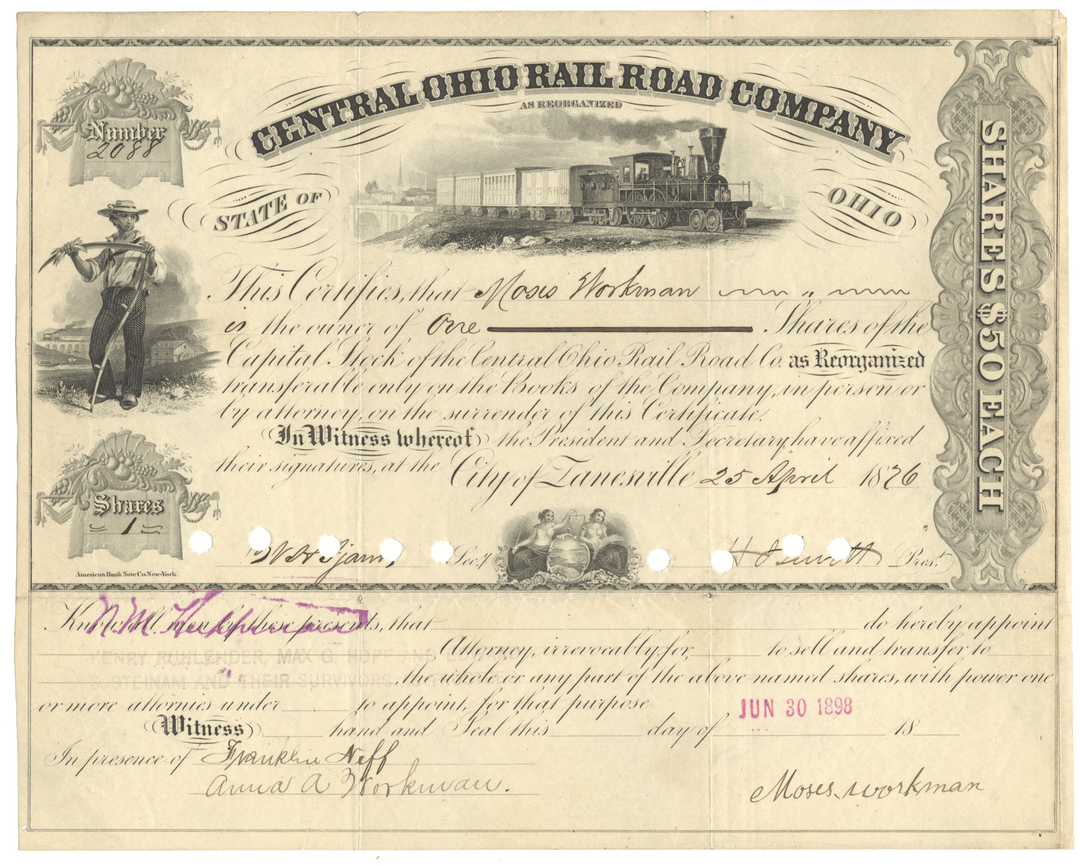 CENTRAL OHIO RAIL ROAD COMPANY
AS REORGANIZED
Number
2088
STATE OF OHIO
SHARES $50 EACH
This Certifies, that Moses Workman
is the owner of One Shares of the
Capital Stock of the Central Ohio Rail Road Co. as Reorganized
transferable only on the Books of the Company, in person or
by attorney, on the surrender of this Certificate.
In Witness whereof the President and Secretary have affixed
their signatures, at the City of Zanesville 25 April 1876
Shares
1
Sec'y Pres.t
American Bank Note Co. New-York.
Know all men by these presents, that do hereby appoint
HENRY RUHLENDER, MAX G. HOPF AND
Attorney, irrevocably, for to sell and transfer to
S. STEINAM AND THEIR SURVIVORS
the whole or any part of the above named shares, with power one
or more attornies under to appoint, for that purpose
JUN 30 1898
Witness hand and Seal this day of 18
In presence of Franklin Neff
Anna A Workman.
Moses Workman